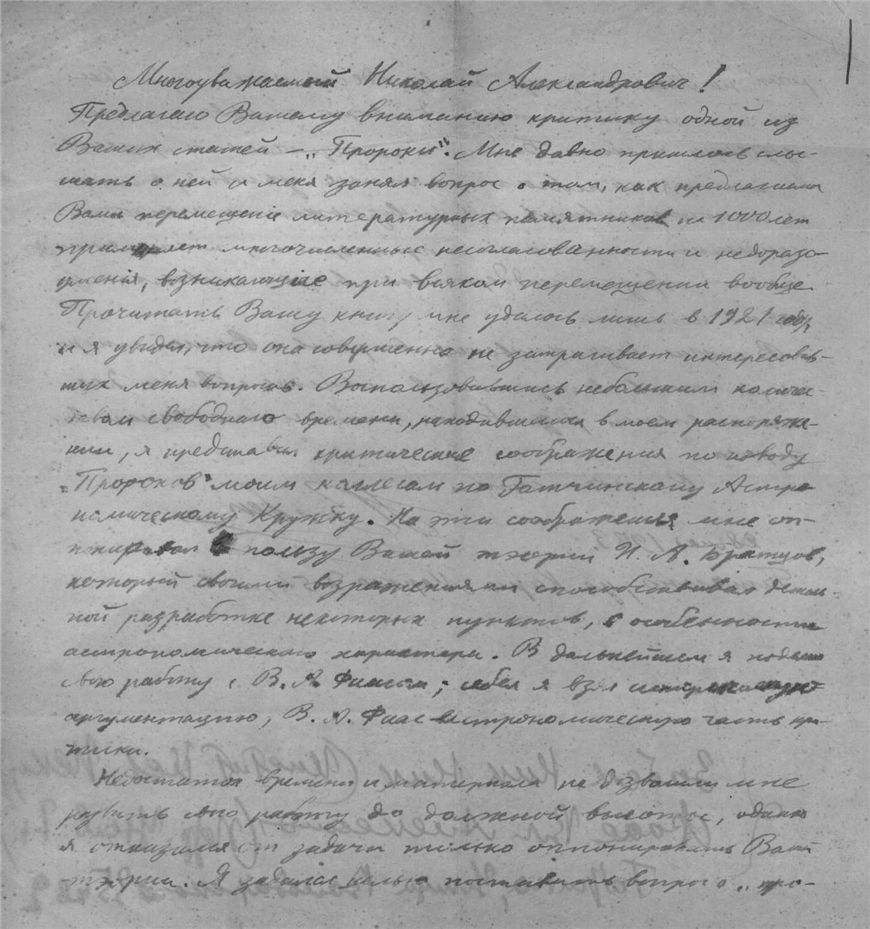 Многоуважаемый Николай Александрович!
Предлагаю Вашему вниманию критику одной из
Ваших статей – „Пророки". Мне давно пришлось слы-
шать о ней и меня занял вопрос о том, как предлагаемое
Вами перемещение литературных памятников на 1000 лет
примиряет многочисленные несогласованности и недоразу-
мения, возникающие при всяком перемещении вообще.
Прочитать Вашу книгу мне удалось лишь в 1921 году,
и я увидел, что она совершенно не затрагивает интересовав-
ших меня вопросов. Воспользовавшись небольшим количе-
ством свободного времени, находившегося в моем распоряже-
нии, я представил критические соображения по поводу
„Пророков" моим коллегам по Гатчинскому Астро-
номическому Кружку. На эти соображения мне оп-
понировал в пользу Вашей теории И. А. Братцов,
который своими возражениями способствовал деталь-
ной разработке некоторых пунктов, в особенности
астрономического характера. В дальнейшем я
свою работу с В. А. ; себе я взял
аргументацию, В. А. Фаас астрономическую часть кри-
тики.
Недостаток времени и материала не дозволили мне
развить свою работу до должной высоты, однако
я отказался от задачи только оппонировать Вашей
теории. Я задался целью поставить вопрос о „про-